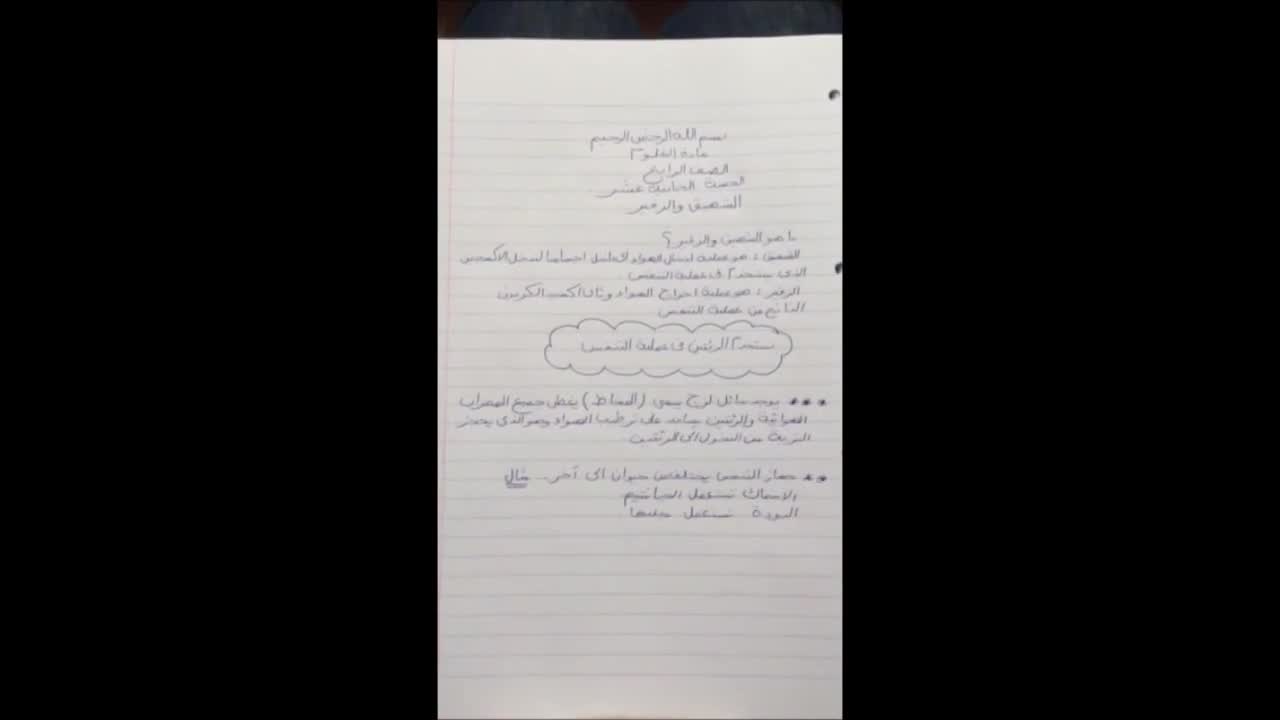 بسم الله الرحمن الرحيم
مادة العلوم
الصف الرابع
الحصة الثانية عشر
الشهيق والزفير
ما هو الشهيق والزفير ؟
الشهيق : هو عملية ادخال الهواء الى داخل اجسامنا ليدخل الأكسجين
الذي يستخدم في عملية التنفس
الزفير : هو عملية اخراج الهواء وثاني اكسيد الكربون
الناتج من عملية التنفس
يستخدم الرئتين في عملية التنفس
*** يوجد سائل لزج يسمى (المخاط) يغطي جميع الممرات
الهوائية والرئتين يساعد على ترطيب الهواء وهو الذي يحجز
الاتربة من الدخول الى الرئتين
** جهاز التنفس يختلف من حيوان الى آخر .. مثال
الاسماك تستعمل الخياشيم
الدودة تستعمل جلدها